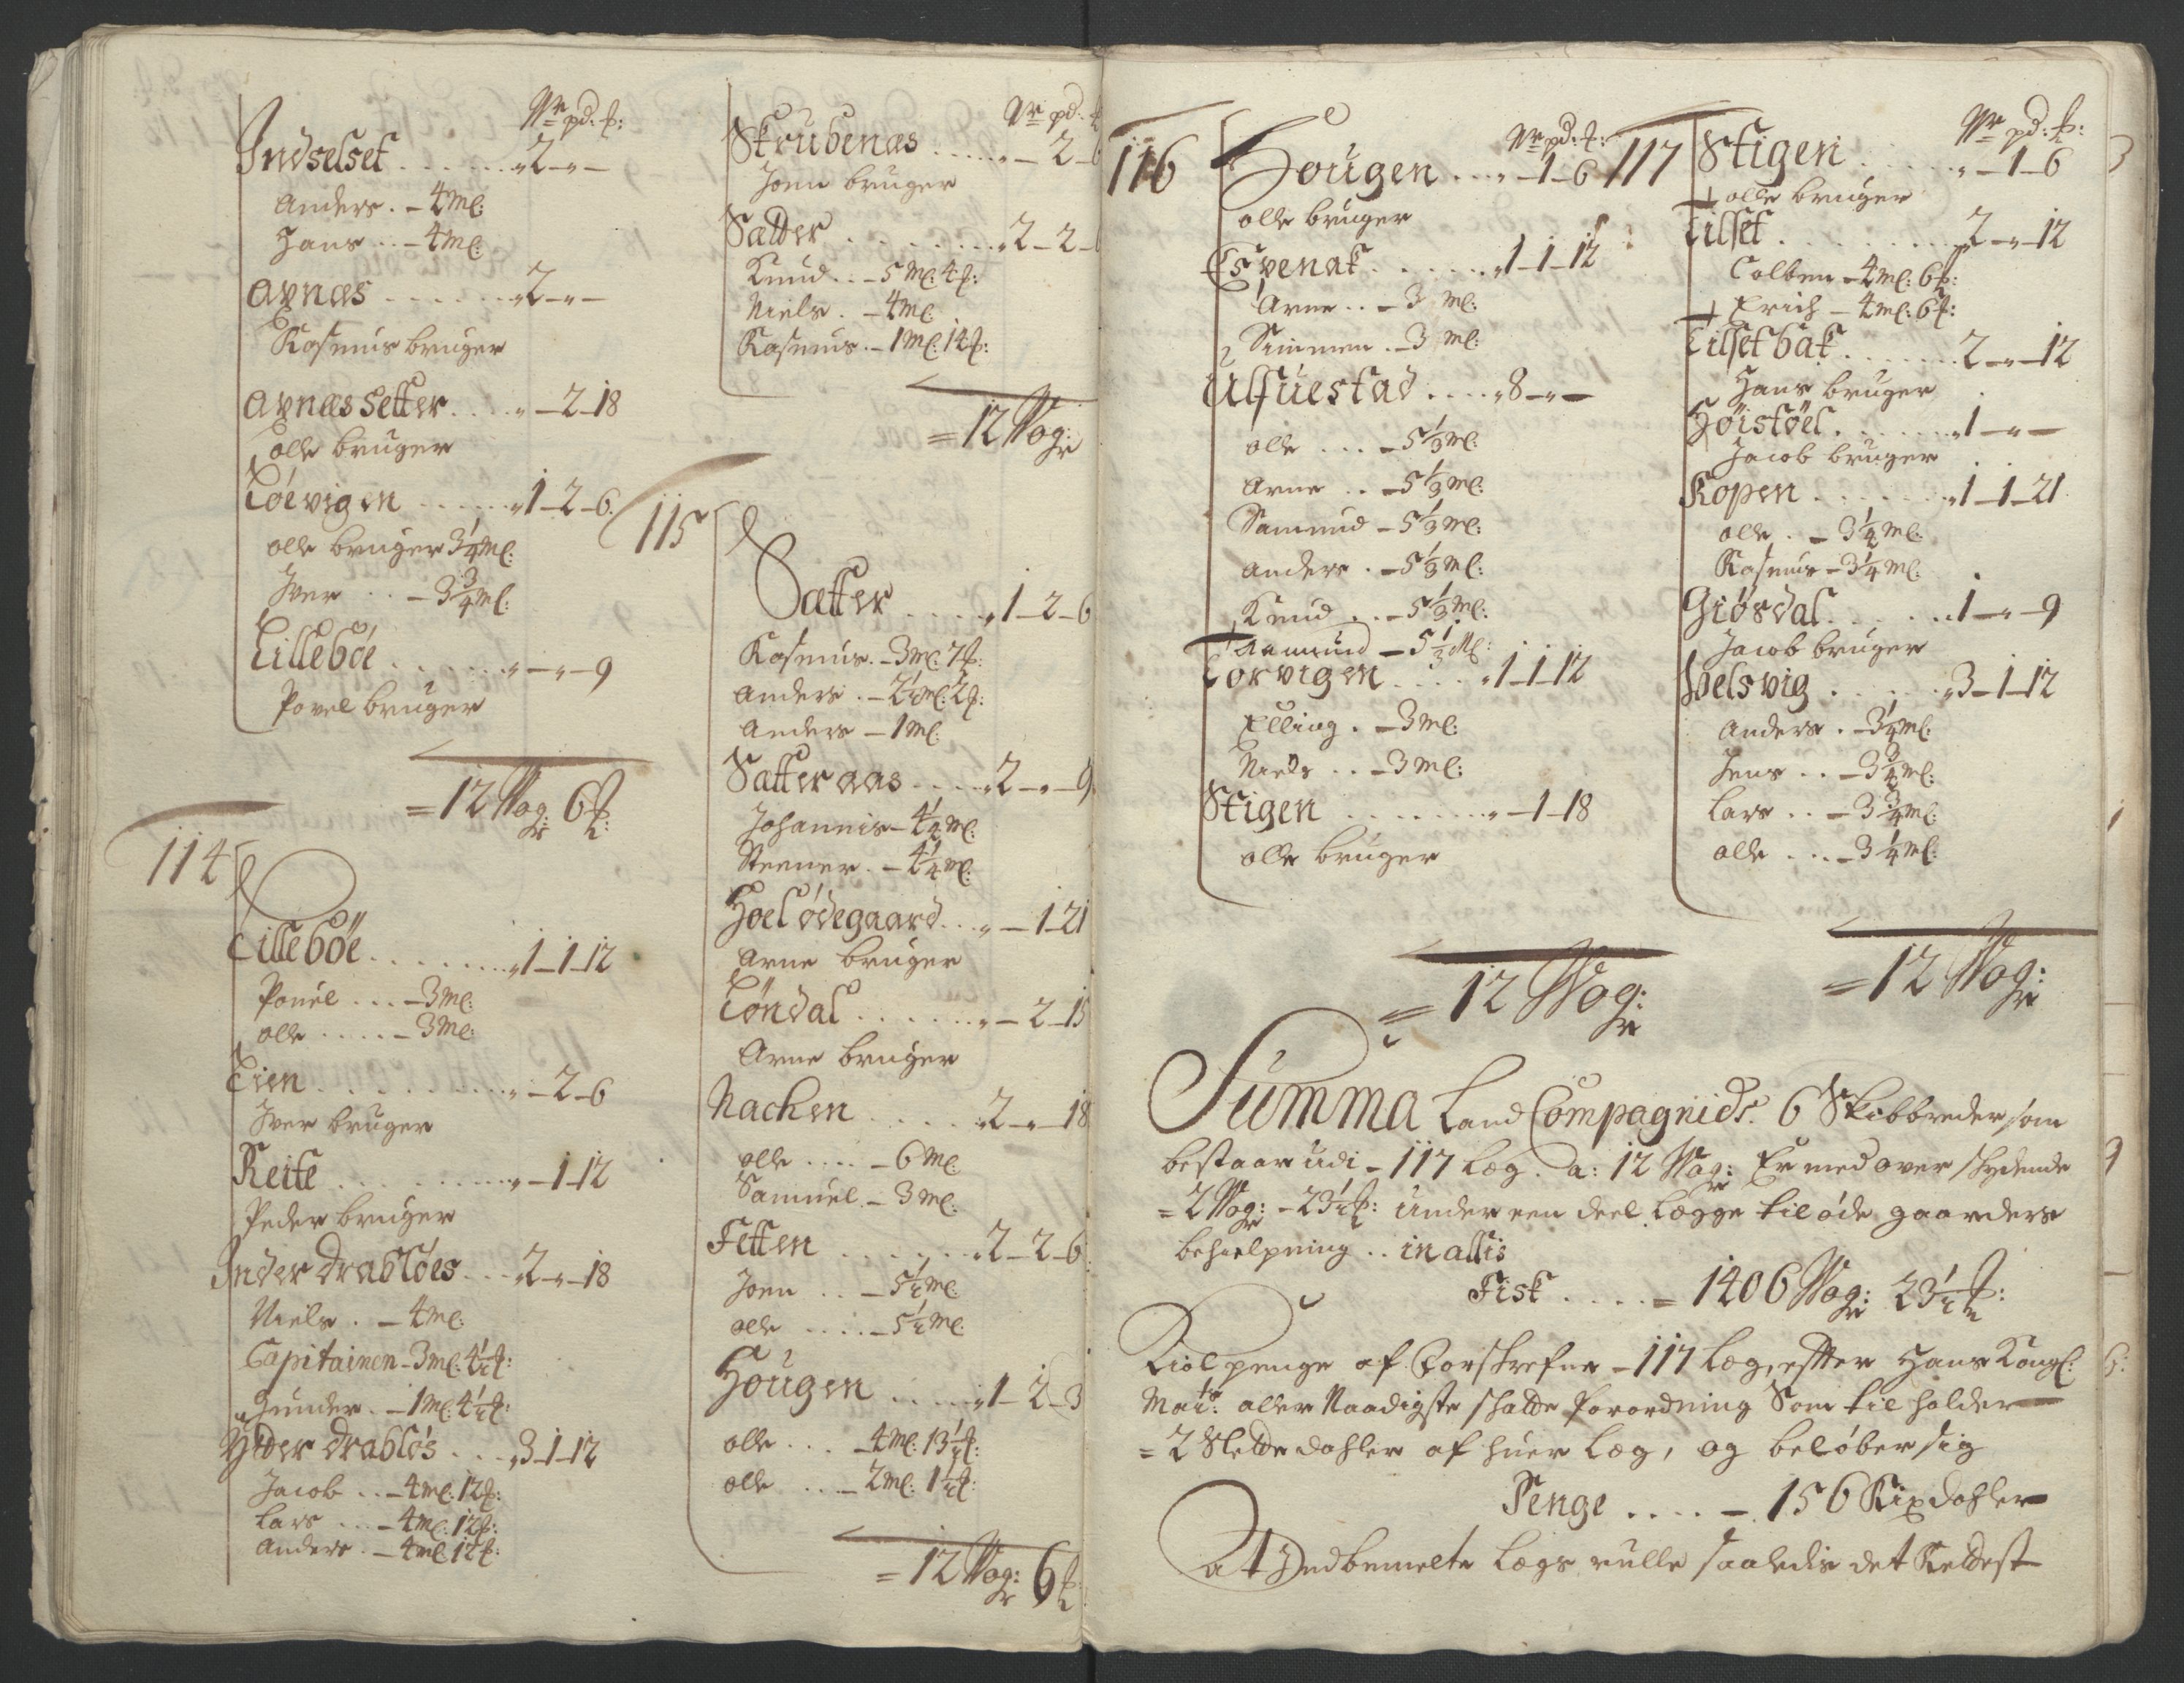 Wr pd: ℔:
Indselset . . . . . . „2-„-
Anders . - 4 Ml:
Hans . . - 4 Ml:
Aynæs . . . . . . „2-„-
Rasmus bruger
Aynæs Setter . . . . „-2-18
olle bruger
Löevigen . . . . . „1-2-6
olle bruger 3¼ Ml:
Iver . . - 3¾ Ml:
Lilleböe . . . . . . „-„-9
Povel bruger
= 12 Wog: 6 ℔:
114
Lilleböe . . . . . . . „1-1-12
Pouel . . . - 3 Ml:
olle . . . . . - 3 Ml:
Lien . . . . . . . . . „-2-6
Iver bruger
Reite . . . . . . . . „-1-12
Peder bruger
Inder drablöes . . . „2-„-18
Niels . - 4 Ml:
Capitainen - 3 Ml: 4½ ℔:
Gunder . - 1 Ml: 4½ ℔:
Ytder drablös . . . . „3-1-12
Jacob . . - 4 Ml: 12 ℔:
Lars . . . - 4 Ml: 12 ℔:
Anders . - 4 Ml: 12 ℔:
Wr pd: ℔
Skrubenæs . . . . . „-2-6
Joen bruger
Sætter . . . . . . . . „2-2-
Knud . . - 5 Ml: 4 ℔:
Niels . - 4 Ml:
Rasmus . - 1 Ml: 14 ℔:
= 12 Wog:
115
Sætter . . . . . „1-2-6
Rasmus . - 3 Ml: 7 ℔:
Anders . - 2½ Ml: 2 ℔:
Anders - 1 Ml:
Sætter aas . . . . „2-„-9
Johannis - 4¼ Ml:
Steener . - 4¼ Ml:
Hoel ödegaard . . . „-1-21
Arne bruger
Löndal . . . . . . . „-2-15
Arne bruger
Nachen . . . . . „2-„-18
olle . . . . - 6 Ml:
Samuel - 3 Ml:
Fetten . . . . . . „2-2-6
Joen . . - 5½ Ml:
olle . . . . - 5½ Ml:
Hougen . . . . . „1-2-3
olle . . . - 4 Ml: 13½ ℔:
olle . . . - 2 Ml: 1½ ℔:
= 12 Wog: 6 ℔
116
Wr pd: ℔:
Hougen . . . „-1-6
olle bruger
Esvenak . . . . . . „1-1-12
Arne . . - 3 Ml:
Simmen . - 3 Ml:
Ulfuestad . . . . „8-„-
olle . . . - 5⅓ Ml:
Arne . . - 5⅓ Ml:
Sammud - 5⅓ Ml:
Anders . - 5⅓ Ml:
Knud . . - 5⅓ Ml:
Aamund - 5⅓ Ml:
Torvigen . . . . „1-1-12
Elling . - 3 Ml:
Niels . . - 3 Ml:
Stigen . . . . . . . „-1-18
olle bruger
= 12 Wog:
117
Wr pd: ℔:
Stigen . . . . . „-1-6
olle bruger
Tilset . . . . . . . . 2-„-12
Colben - 4 Ml: 6 ℔:
Erich - 4 Ml: 6 ℔:
Tilset bak . . . . . . . 2-„-12
Hans bruger
Höistöel . . . . . . „1-„-
Jacob bruger
Kopen . . . . . . . „1-1-21
olle . - 3¼ Ml:
Rasmus - 3¼ Ml:
Giösdal . . . . . . „1-„-9
Jacob bruger
Hoelsvig . . . . . . „3-1-12
Anders . - 3¼ Ml:
Jens . . - 3¾ Ml:
Lars . . - 3¾ Ml:
olle . . . - 3¼ Ml:
= 12 Wog:
Summa Land Compagnids. 6 Skibbreder som
bestaar udi - 117 Læg . a: 12 Wog: Er med over skydende
= 2 Wog: - 23½ ℔: Under een deel Lægge til öde gaarders
behielpning . . in allis
Fisk . . . . = 1406 Wog: 23½ ℔:
Kiol penge af Forskrefne - 117 Læg, efter Hans Kongl:
Maits: aller Naadigste skatte Forordning Som til holder
= 2 Slette dahler af huer Læg, og belöber sig
Penge . . . . - 156 Rixdahler
At Indbemelte Lægs rulle saaledis det Rettest